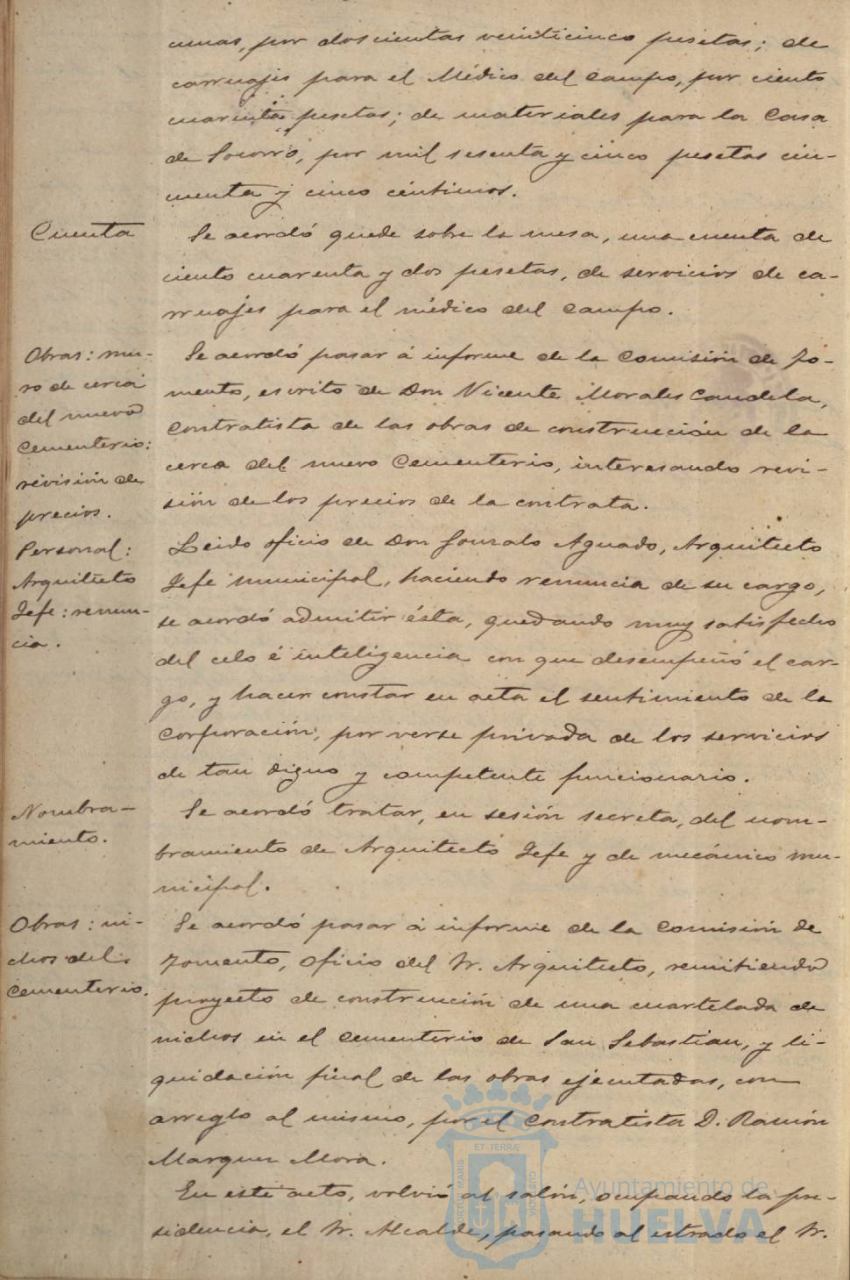 unas, por doscientas veinticinco pesetas; de
carruajes para el Médico del Campo, por ciento
cuarenta pesetas; de materiales para la Casa
de Socorro, por mil sesenta y cinco pesetas cin-
cuenta y cinco céntimos.
Cuenta
Se acordó quede sobre la mesa, una cuenta de
ciento cuarenta y dos pesetas, de servicios de ca-
rruajes para el médico del Campo.
Obras: mu-
ro de cerca
del nuevo
Cementerio:
revisión de
precios.
Se acordó pasar á informe de la Comisión de Fo-
mento, escrito de Don Vicente Morales Candela,
Contratista de las obras de construcción de la
cerca del nuevo Cementerio, interesando revi-
sión de los precios de la contrata.
Personal:
Arquitecto
Jefe: renun-
cia.
Leido oficio de Don Gonzalo Aguado, Arquitecto
Jefe municipal, haciendo renuncia de su cargo,
se acordó admitir ésta, quedando muy satisfecho
del celo é inteligencia con que desempeñó el car-
go, y hacer constar en acta el sentimiento de la
Corporación, por verse privada de los servicios
de tan digno y competente funcionario.
Nombra-
miento.
Se acordó tratar, en sesión secreta, del nom-
bramiento de Arquitecto Jefe y de mecánico mu-
nicipal.
Obras: ni-
chos del
Cementerio.
Se acordó pasar á informe de la Comisión de
Fomento, Oficio del Sr. Arquitecto, remitiendo
proyecto de construcción de una cuartelada de
nichos en el Cementerio de San Sebastian, y li-
quidación final de las obras ejecutadas, con
arreglo al mismo, por el Contratista D. Ramón
Marquez Mora.
En este acto, volvió al salón, ocupando la pre-
sidencia, el Sr. Alcalde, pasando al estrado el Sr.
ET TERRÆ
Ayuntamiento de
HUELVA